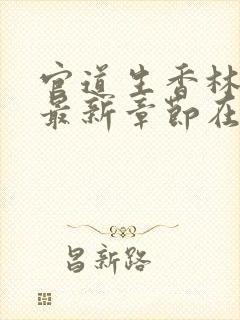 官道生香林
最新章节在
昌新路